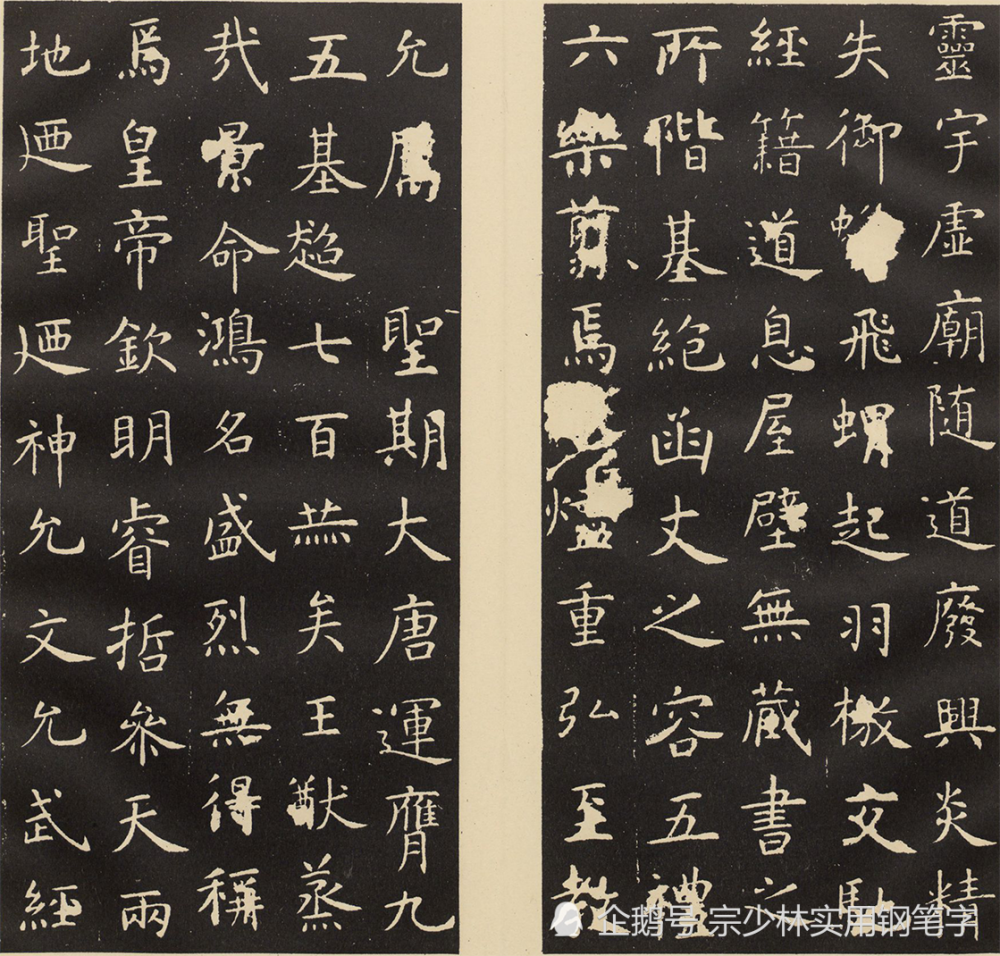 靈宇虛廟隨道廢興炎精
失御飛蝟起羽檄交馳
經籍道息屋壁無藏書之
所階基絕函丈之容五禮
六樂翦焉燼重弘至教
允屬 聖期大唐運膺九
五基超七百赫矣王猷蒸
哉景命鴻名盛烈無得稱
焉皇帝欽明睿哲參天兩
地迺聖迺神允文允武經
企鹅号 宗少林实用钢笔字